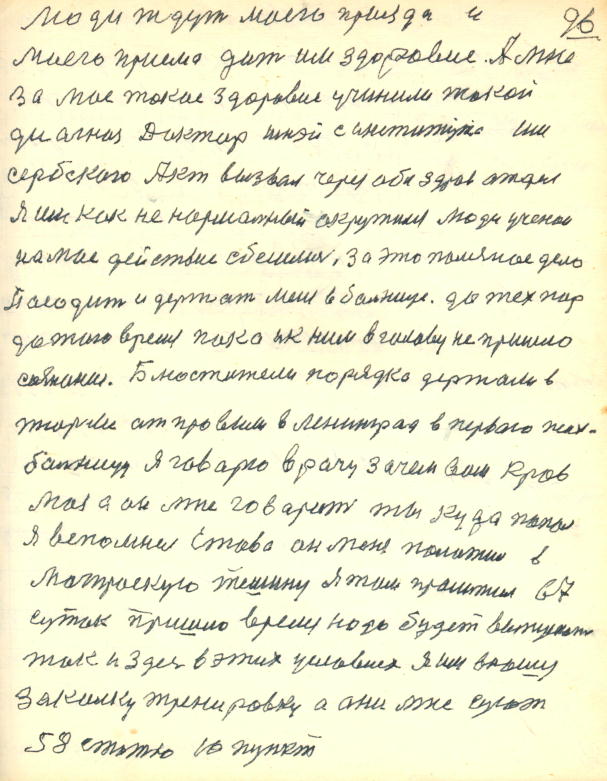 96
Люди ждут моего приезда и
моего приема дат им здоровие. А мне
за мое такое здоровие учинили такой
диагноз Доктор  института им
сербского Акт вызвал через обл здрав отдел
Я им как не нормалный окружил люди ученои
на мое действие сбешилис, за это полезное дело
Посодит и держат меня в болнице. до тех пор
до того время пока як ним в голову не пришло
сознание. Блюстители порядка держали в
тюрме отправили в ленинград в первого псих-
болницу Я говорю врачу зачем вам кров
моя а он мне говорит ты куда попал
Я вспомнил слова он меня положил в
Матроскую тишину Я там пролежал 67
суток пришло время надо будет выписат
так и здес в этих условиях Я им вношу
закалку тренировку а они мне суют
58 статю 10 пункт